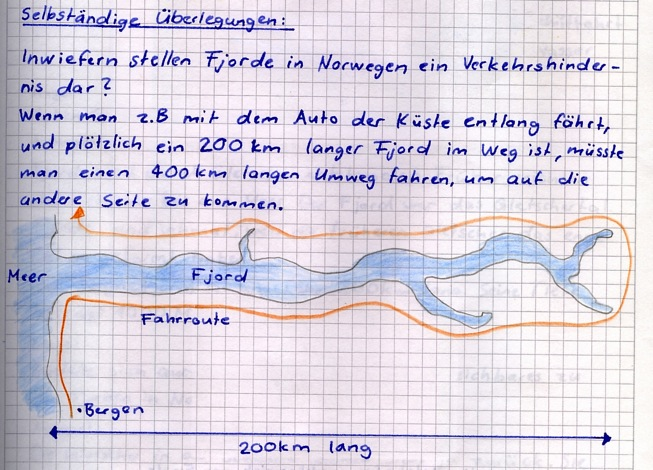 Selbständige Überlegungen:
Inwiefern stellen Fjorde in Norwegen ein Verkehrshinder-
nis dar?
Wenn man z.B mit dem Auto der Küste entlang fährt,
und plötzlich ein 200 km langer Fjord im Weg ist, müsste
man einen 400 km langen Umweg fahren, um auf die
andere Seite zu kommen.
Meer
Fjord
Fahrroute
Bergen
200km lang